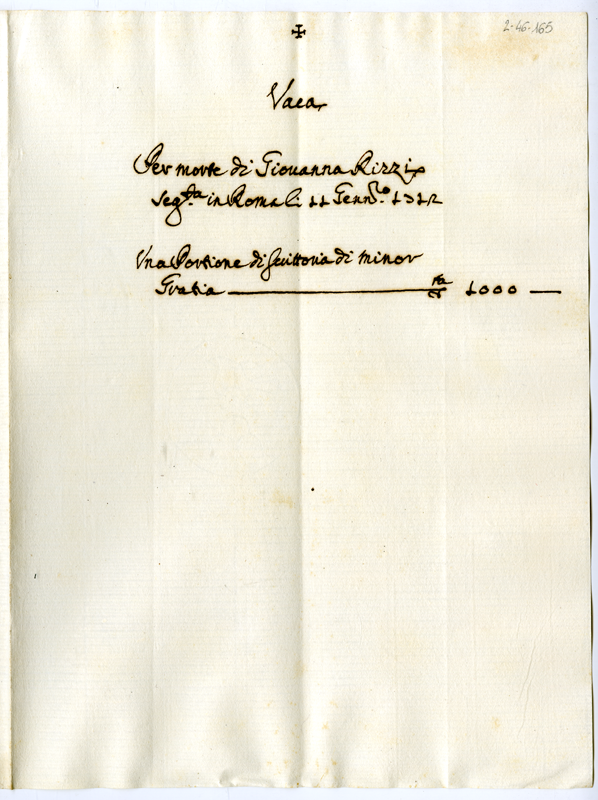 2-46-165
✠
Vaca
Per morte di Giovanna Rizzi
seg.ta in Roma li 11 Genn.o 1712
Una Portione di scrittoria di minor
Gratia ———— 1000 —